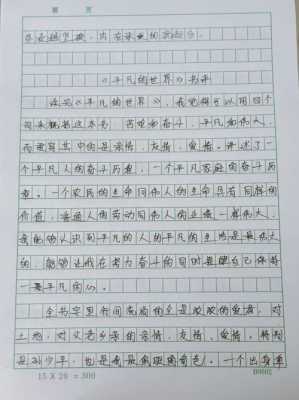 第 页
《平凡的世界》书评
读完《平凡的世界》，我觉得可以用四个
词来概括这本书：苦难和奋斗，平凡和伟大，
而贯穿其中的是亲情，友情，爱情。讲述了一
个平凡人的奋斗历程，一个平凡家庭的奋斗历
程。一个农民的生命同伟人的生命具有同样的
价值，普通人的劳动同伟人的业绩一样伟大，
我能够认识到平凡的人的平凡的生活是最伟大
的，能够让我在努力奋斗的同时是自己保持
一颗平凡的心。
全书字里行间流露的全是浓浓的爱意，对
土地，对父老乡亲的亲情，友情，爱情。特别
是孙少平，也是我最的角色。一个出身
15 X 20 = 300